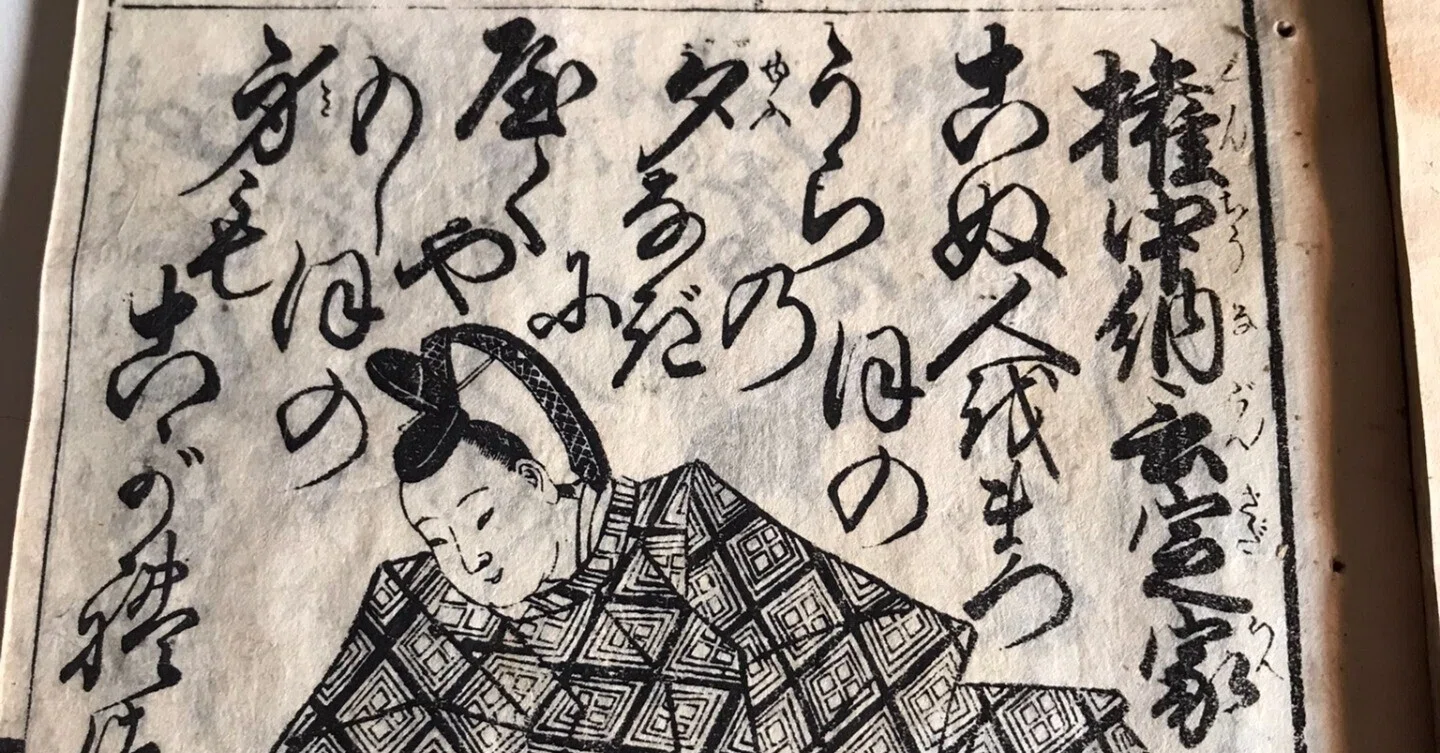 權中納言定家
こぬ人をまつ
ほの
うらの
夕なぎに
やくや
もしほの
身も
こがれ